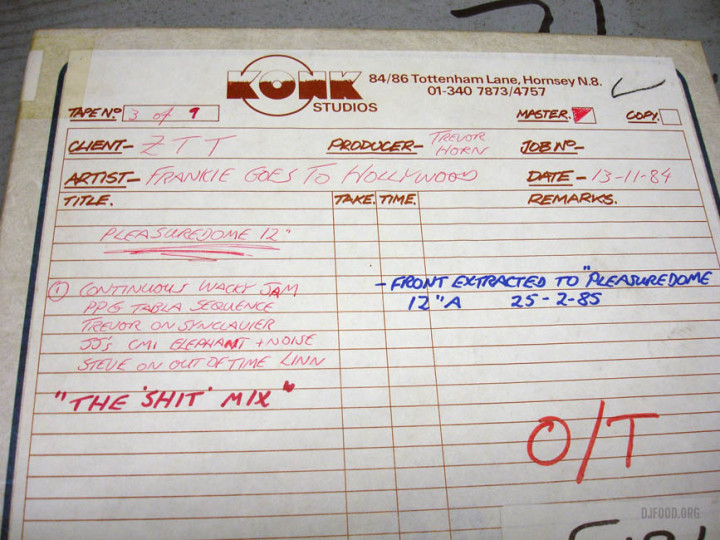 KONK STUDIOS
84/86 Tottenham Lane, Hornsey N.8.
01-340 7873/4757
TAPE Nº 3 of 9 MASTER. COPY.
CLIENT- ZTT PRODUCER- TREVOR HORN JOB Nº-
ARTIST- FRANKIE GOES TO HOLLYWOOD DATE- 13-11-84
TITLE. TAKE. TIME. REMARKS.
PLEASUREDOME 12"
① CONTINUOUS WACKY JAM
PPG TABLA SEQUENCE
TREVOR ON SYNCLAVIER
JJ's CMI ELEPHANT + NOISE
STEVE ON OUT OF TIME LINN
"THE 'SHIT' MIX"
- FRONT EXTRACTED TO "PLEASUREDOME
12" A 25-2-85
O/T
DJFOOD.ORG